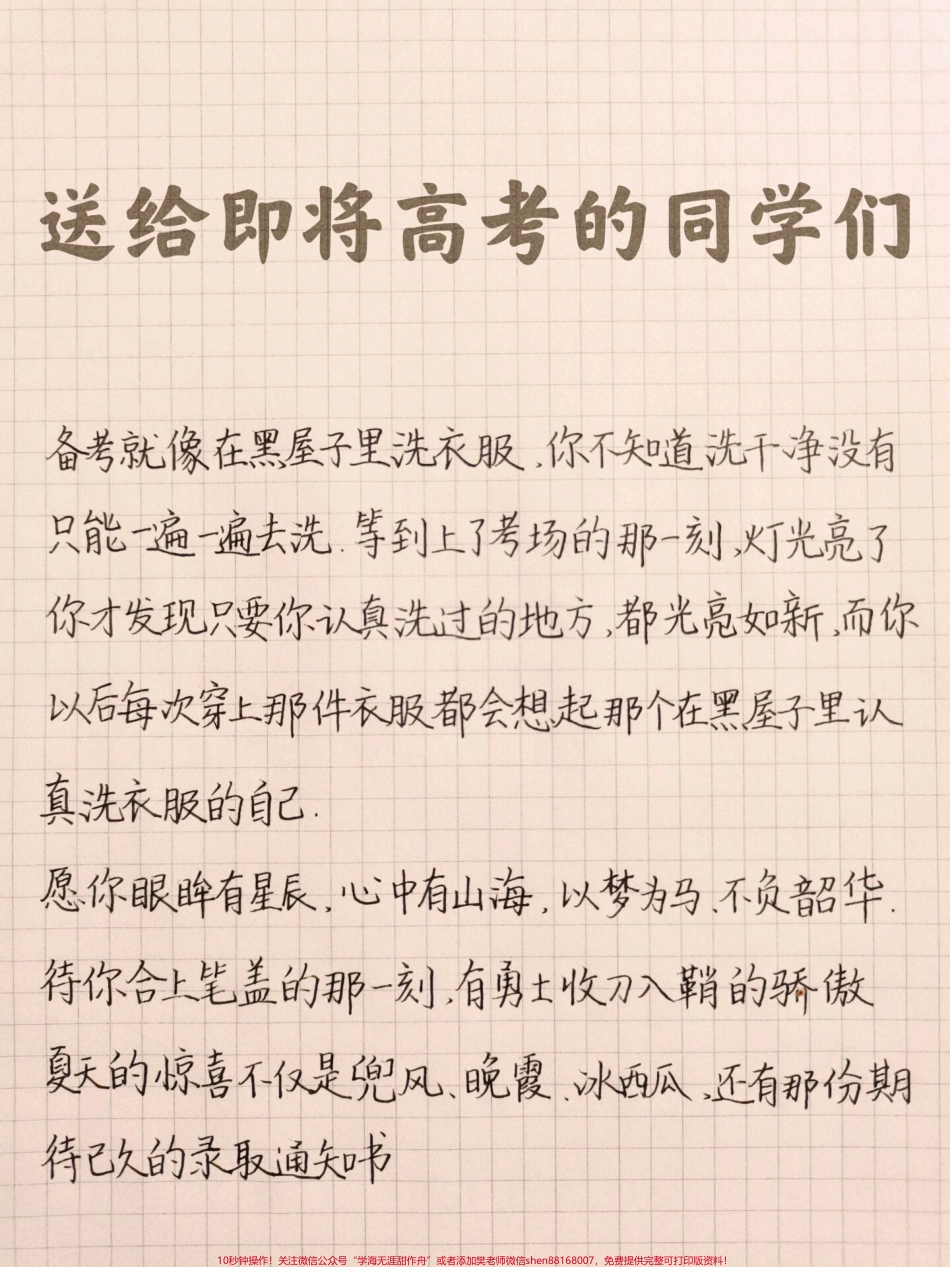 送给即将高考的同学们
备考就像在黑屋子里洗衣服,你不知道洗干净没有
只能一遍一遍去洗.等到上了考场的那一刻,灯光亮了
你才发现只要你认真洗过的地方,都光亮如新,而你
以后每次穿上那件衣服都会想起那个在黑屋子里认
真洗衣服的自己.
愿你眼眸有星辰,心中有山海,以梦为马、不负韶华.
待你合上笔盖的那一刻,有勇士收刀入鞘的骄傲
夏天的惊喜不仅是兜风、晚霞、冰西瓜,还有那份期
待已久的录取通知书
10秒钟操作!关注微信公众号“学海无涯甜作舟”或者添加樊老师微信shen88168007,免费提供完整可打印版资料!